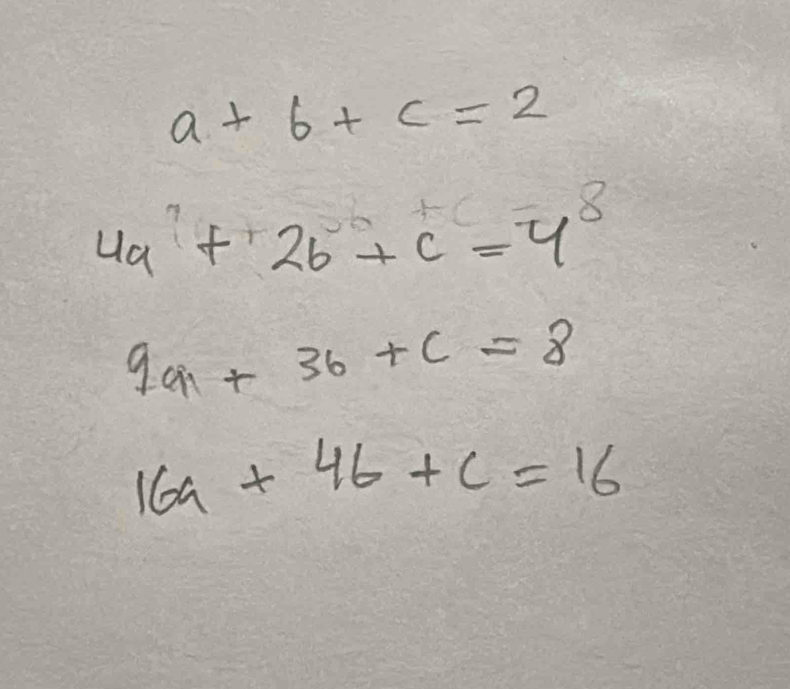 a + b + c = 2
4a + 2b + c = 4
9a + 3b + c = 8
16a + 4b + c = 16